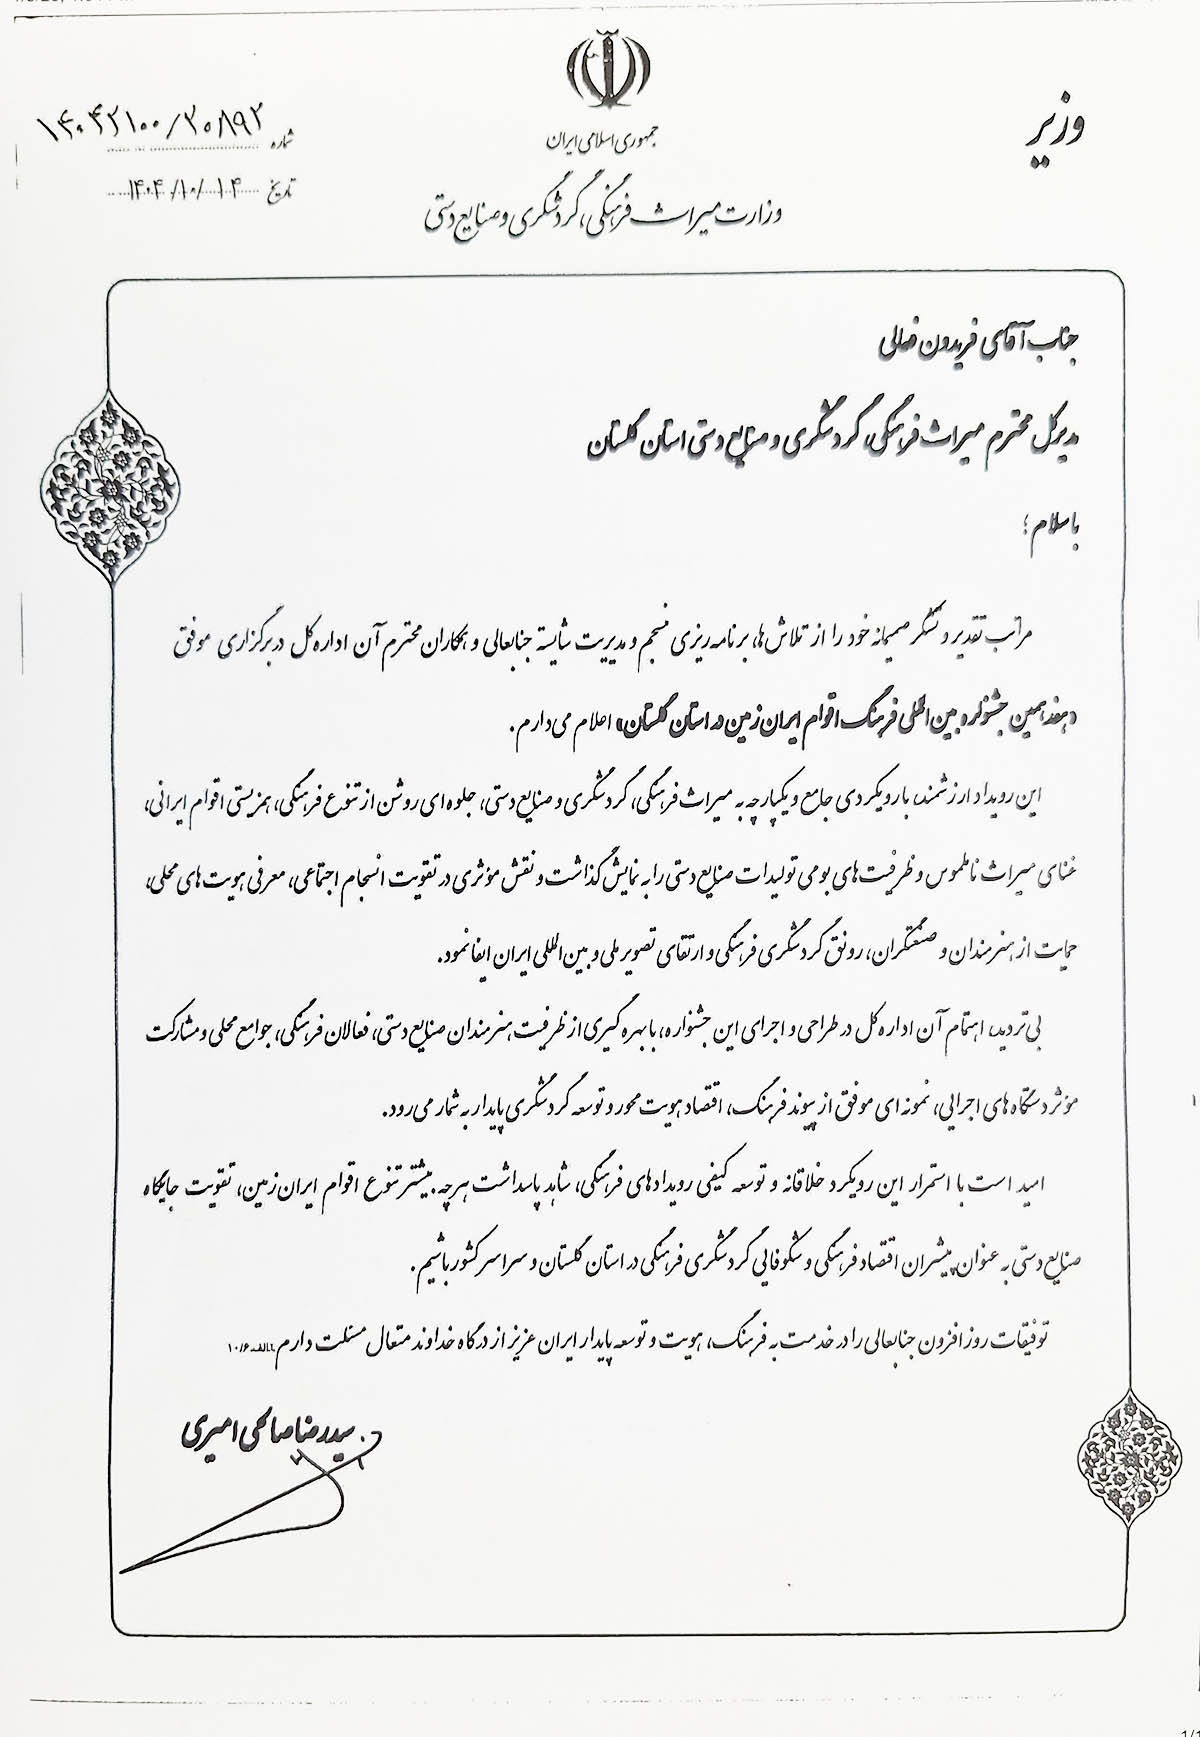 وزیر
جمهوری اسلامی ایران
وزارت میراث فرهنگی، گردشگری و صنایع دستی
شماره ۱۴۰۴۲۱۰۰/۲۰۸۹۲
تاریخ ۱۴۰۴/۱۰/۱۴
جناب آقای فریدون فعالی
مدیرکل محترم میراث فرهنگی، گردشگری و صنایع دستی استان گلستان
با سلام؛
مراتب تقدیر و تشکر صمیمانه خود را از تلاش‌ها، برنامه ریزی منسجم و مدیریت شایسته جنابعالی و همکاران محترم آن اداره کل در برگزاری موفق
«هفدهمین جشنواره بین‌المللی فرهنگ اقوام ایران زمین در استان گلستان» اعلام می‌دارم.
این رویداد ارزشمند، با رویکردی جامع و یکپارچه به میراث فرهنگی، گردشگری و صنایع دستی، جلوه‌ای روشن از تنوع فرهنگی، همزیستی اقوام ایرانی،
غنای میراث ناملموس و ظرفیت‌های بومی تولیدات صنایع دستی را به نمایش گذاشت و نقش مؤثری در تقویت انسجام اجتماعی، معرفی هویت‌های محلی،
حمایت از هنرمندان و صنعتگران، رونق گردشگری فرهنگی و ارتقای تصویر ملی و بین‌المللی ایران ایفا نمود.
بی‌تردید، اهتمام آن اداره کل در طراحی و اجرای این جشنواره، با بهره گیری از ظرفیت هنرمندان صنایع دستی، فعالان فرهنگی، جوامع محلی و مشارکت
مؤثر دستگاه‌های اجرایی، نمونه‌ای موفق از پیوند فرهنگ، اقتصاد هویت محور و توسعه گردشگری پایدار به شمار می‌رود.
امید است با استمرار این رویکرد خلاقانه و توسعه کیفی رویدادهای فرهنگی، شاهد پاسداشت هرچه بیشتر تنوع اقوام ایران زمین، تقویت جایگاه
صنایع دستی به عنوان پیشران اقتصاد فرهنگی و شکوفایی گردشگری فرهنگی در استان گلستان و سراسر کشور باشیم.
توفیقات روزافزون جنابعالی را در خدمت به فرهنگ، هویت و توسعه پایدار ایران عزیز از درگاه خداوند متعال مسئلت دارم
سیدرضا صالحی امیری